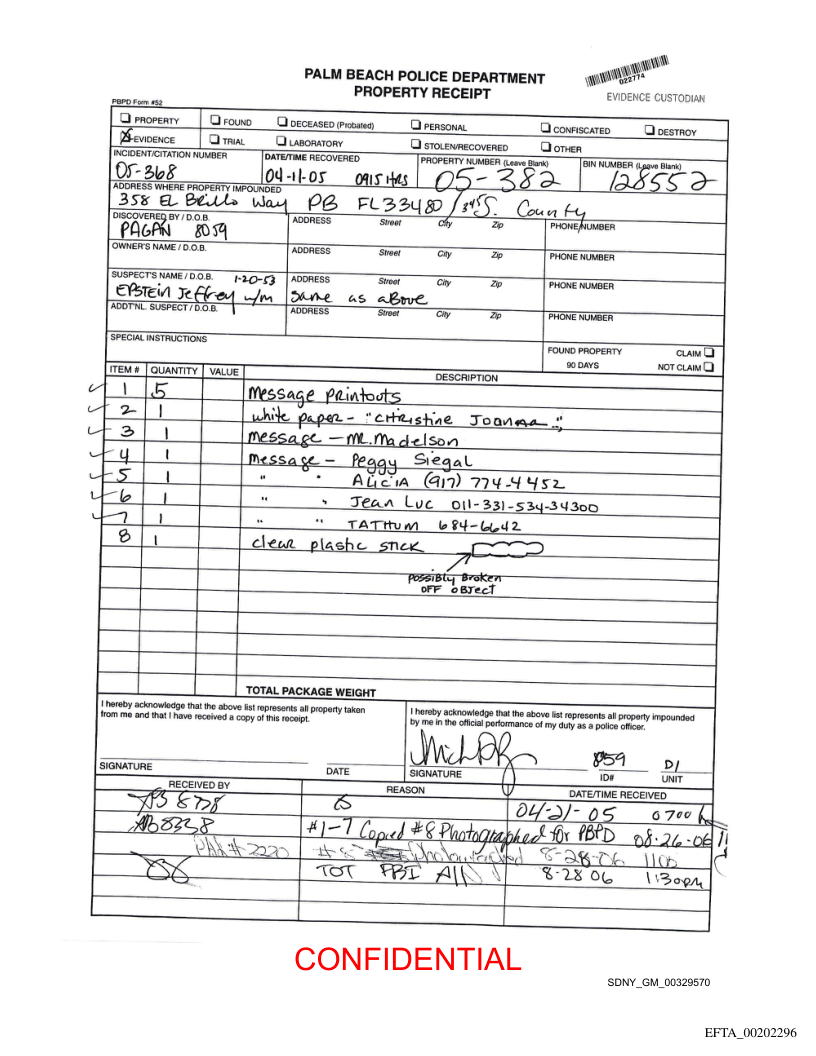 PALM BEACH POLICE DEPARTMENT
PROPERTY RECEIPT
022774
EVIDENCE CUSTODIAN
PBPD Form #52
PROPERTY FOUND DECEASED (Probated) PERSONAL CONFISCATED DESTROY
EVIDENCE TRIAL LABORATORY STOLEN/RECOVERED OTHER
INCIDENT/CITATION NUMBER DATE/TIME RECOVERED PROPERTY NUMBER (Leave Blank) BIN NUMBER (Leave Blank)
05-368 04-11-05 0915 HRS 05-382 128552
ADDRESS WHERE PROPERTY IMPOUNDED
358 EL Brillo Way PB FL 33480 / 345 S. County
DISCOVERED BY / D.O.B. ADDRESS Street City Zip PHONE NUMBER
PAGAN 8059
OWNER'S NAME / D.O.B. ADDRESS Street City Zip PHONE NUMBER
SUSPECT'S NAME / D.O.B. 1-20-53 ADDRESS Street City Zip PHONE NUMBER
EPSTEIN Jeffrey w/m same as above
ADDT'NL. SUSPECT / D.O.B. ADDRESS Street City Zip PHONE NUMBER
SPECIAL INSTRUCTIONS
FOUND PROPERTY CLAIM
90 DAYS NOT CLAIM
ITEM # QUANTITY VALUE DESCRIPTION
1 5 Message Printouts
2 1 white paper - "CHRistine Joanna"
3 1 message - MR. Madelson
4 1 message - Peggy Siegal
5 1 " " ALICIA (917) 774-4452
6 1 " " Jean Luc 011-331-534-34300
7 1 " " TATHUM 684-6642
8 1 clear plastic stick
POSSIBLY BROKEN
OFF OBJECT
TOTAL PACKAGE WEIGHT
I hereby acknowledge that the above list represents all property taken
from me and that I have received a copy of this receipt.
I hereby acknowledge that the above list represents all property impounded
by me in the official performance of my duty as a police officer.
859 DI
SIGNATURE DATE SIGNATURE ID# UNIT
RECEIVED BY REASON DATE/TIME RECEIVED
04-21-05 0700
#1-7 Copied #8 Photographed for PBPD 08-26-06
#8 Photographed 8-28-06 1100
TOT FBI All 8-28 06 1:30pm
CONFIDENTIAL
SDNY_GM_00329570
EFTA_00202296